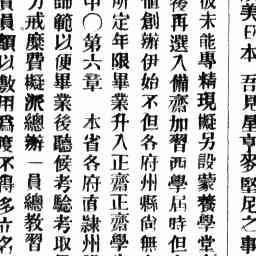 美日本　吾 麥堅尼之事
未能專精現擬另設蒙養學堂
後再選入備齋加習西學屆時但
值創辦伊始不但各府州縣尚無
所定年限畢業升入正齋正齋學生
中〇第六章　本省各府直隸州
師範以便畢業後聽候考驗考取
力戒糜費擬派總辦一員總教習
員員額以敷用爲度不得多立名